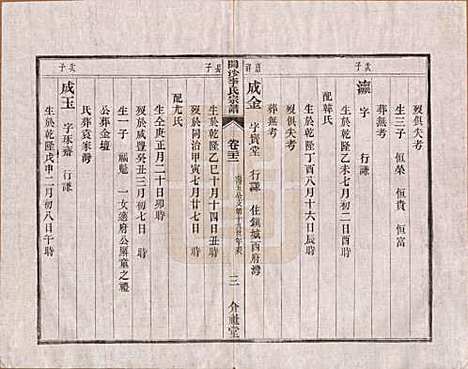 次子
瀛 字 行謙
生於乾隆乙未七月初二日酉時
配韓氏
生於乾隆丁酉八月十六日辰時
歿葬無考
生三子 恒榮 恒貴 恒富
歿俱失考
長子
成金 字寶堂 行謙 住鎮城西府灣
生於乾隆乙巳十月十四日丑時
歿於同治甲寅七月廿七日 時
葬無考
配尤氏
生仝庚正月二十日卯時
歿於咸豐癸丑三月初七日 時
生一子 福魁 一女適府公屏童之禮
公葬金壇
氏葬袁家灣
次子
成玉 字琢齋 行謙
生於乾隆戊申二月初八日午時
開沙李氏宗譜
卷三
三
介祉堂